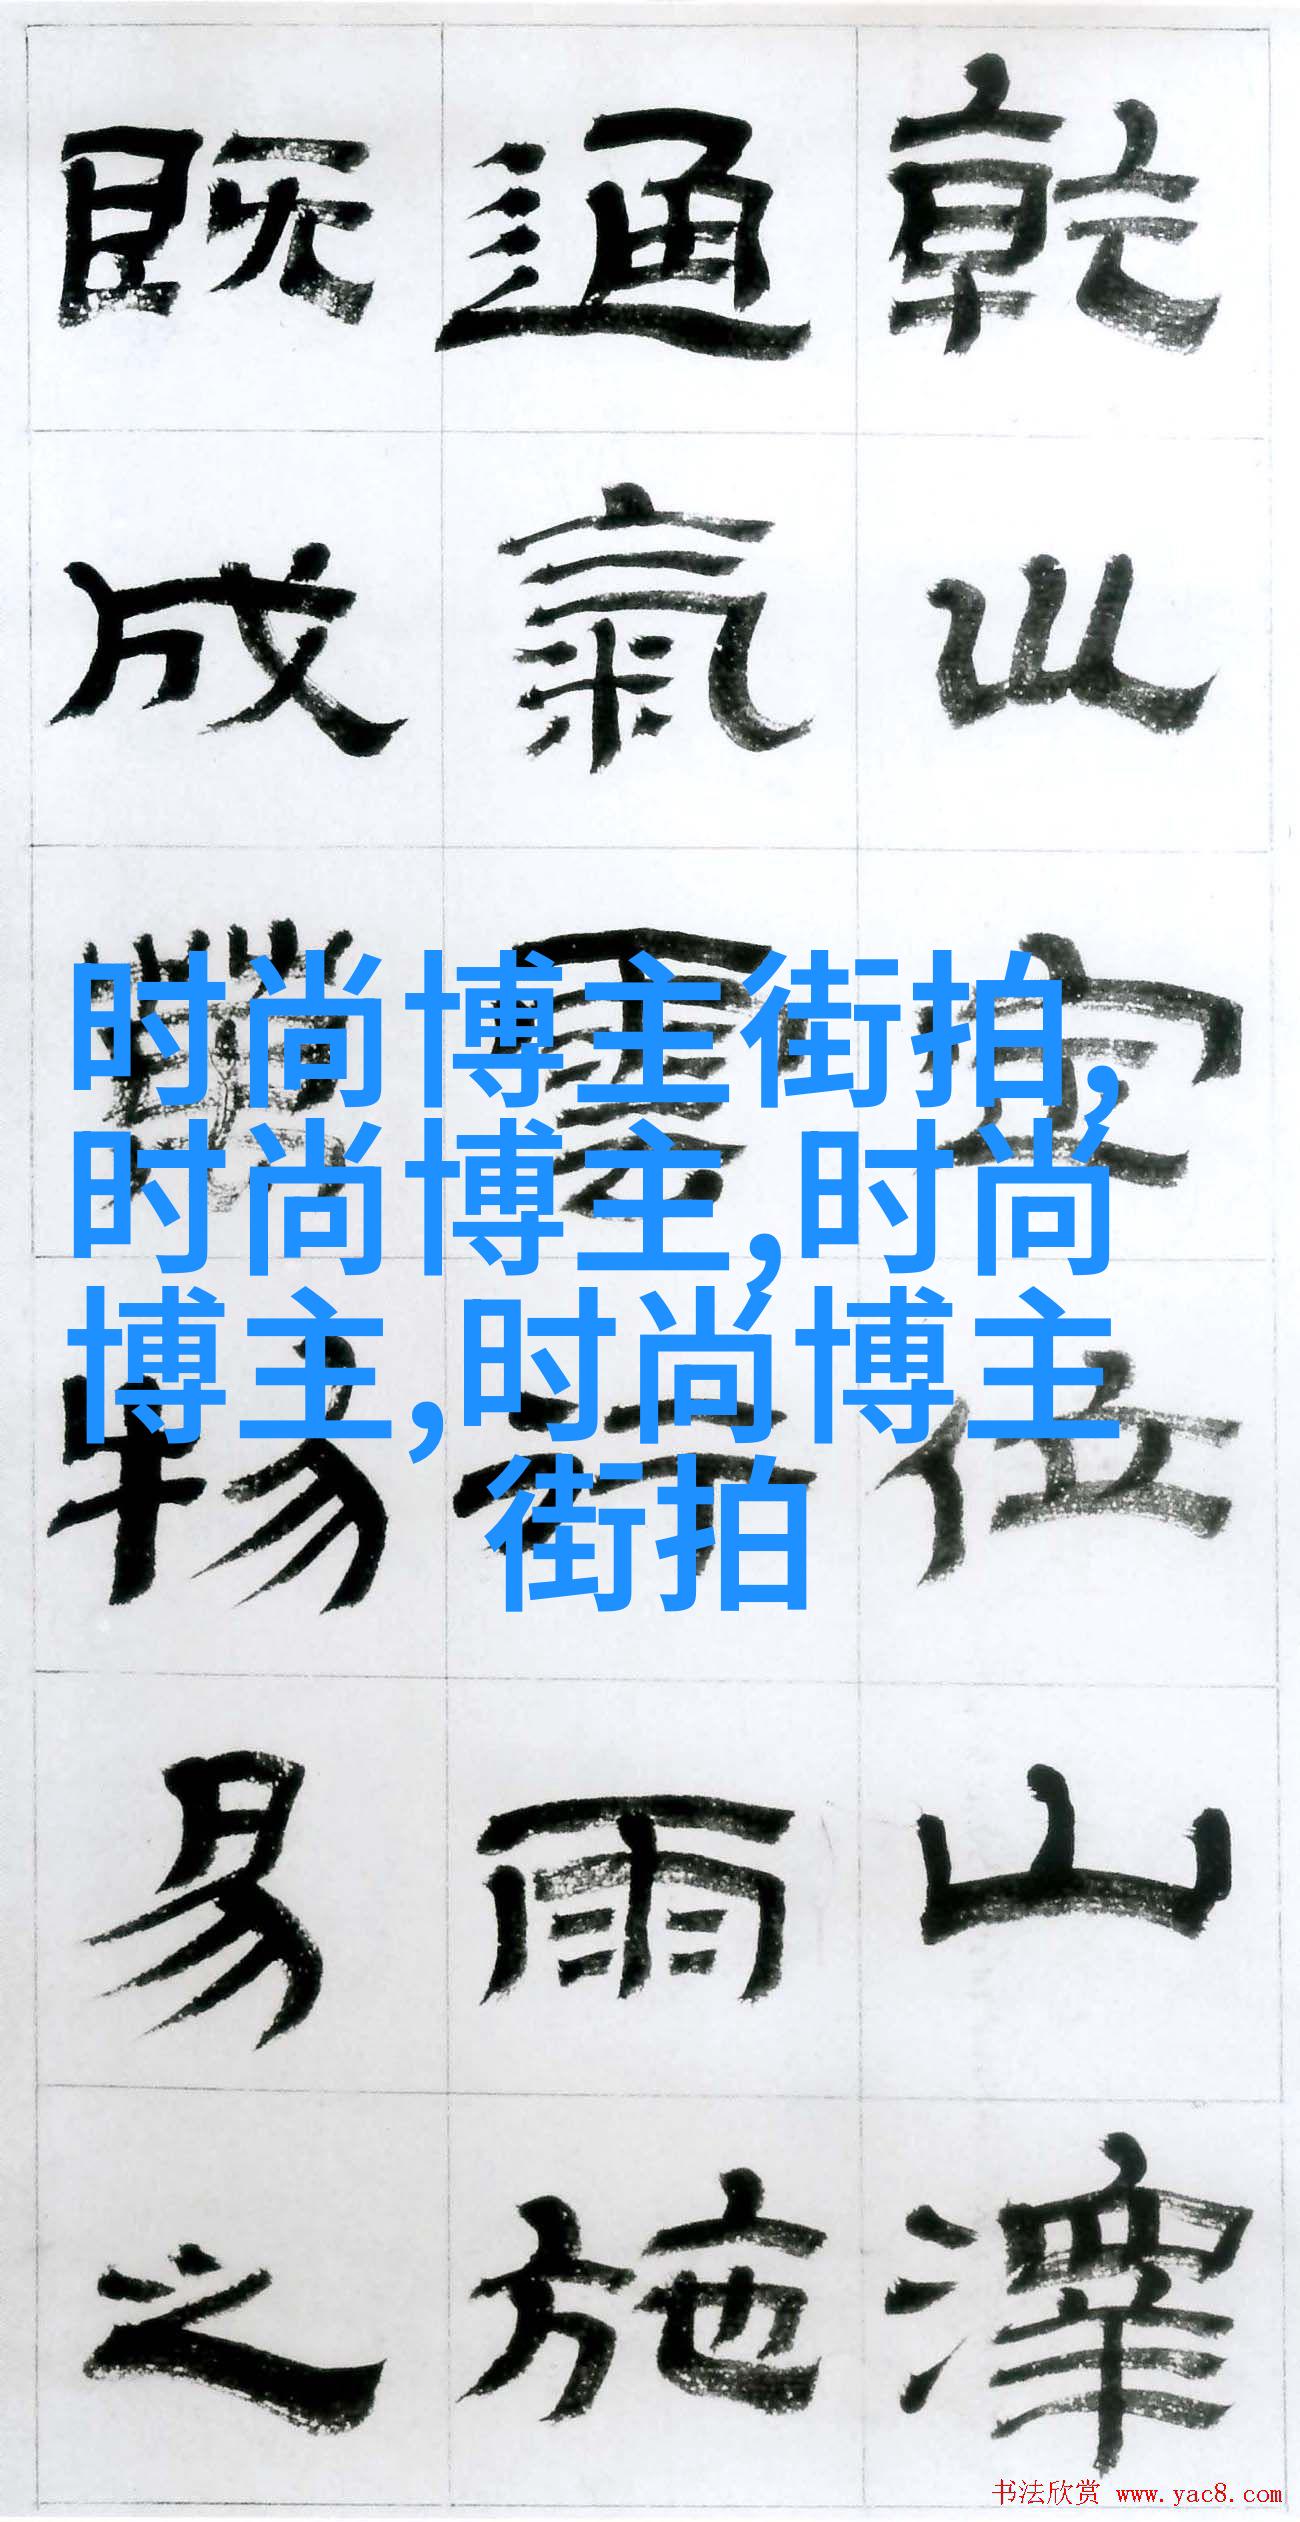 乾巛定位山澤
通氣雲行雨施
既成萬物易之
时尚博主街拍,
时尚博主,时尚
博主,时尚博主
街拍
书法欣赏 www.yac8.com